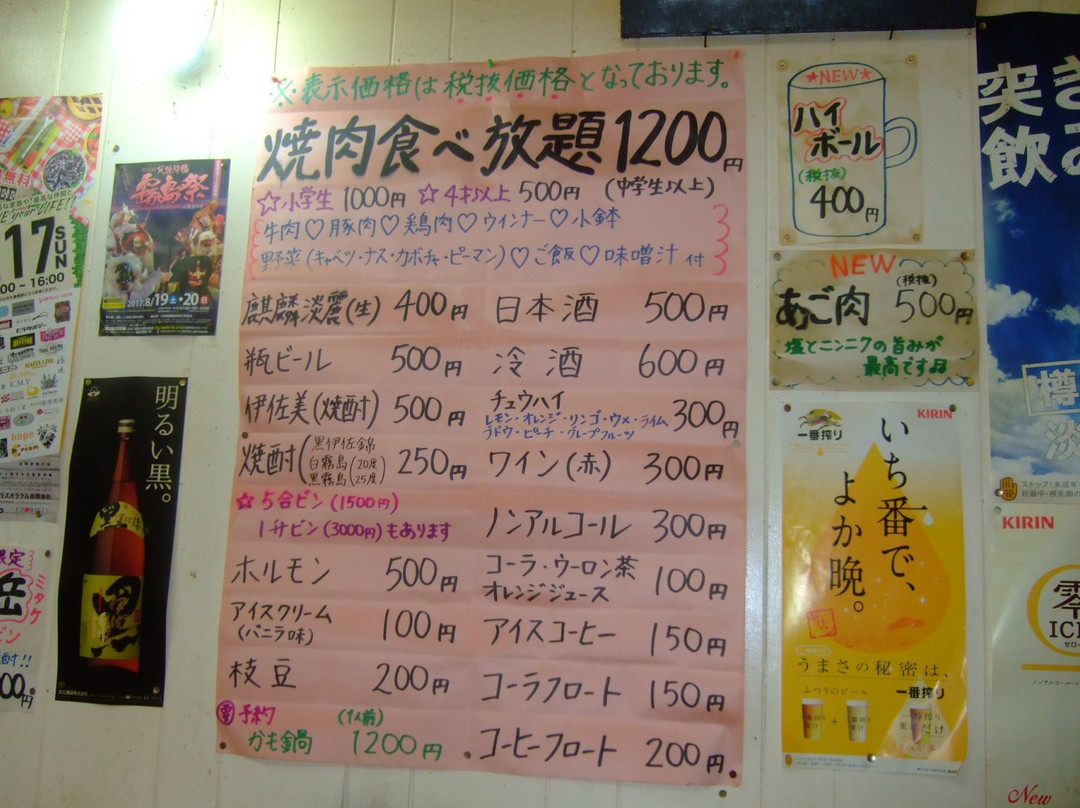 ※表示価格は税抜価格となっております。
焼肉食べ放題1200円
☆小学生 1000円 ☆4才以上 500円 (中学生以上)
牛肉♡豚肉♡鶏肉♡ウィンナー♡小鉢
野菜(キャベツ・ナス・カボチャ・ピーマン)♡ご飯♡味噌汁 付
麒麟淡麗(生) 400円
瓶ビール 500円
伊佐美(焼酎) 500円
焼酎(黒伊佐錦
白霧島(20度
黒霧島(25度
250円
☆5合ビン(1500円)
1升ビン(3000円)もあります
ホルモン 500円
アイスクリーム
(バニラ味)
100円
枝豆 200円
予約 (1人前)
かも鍋 1200円
日本酒 500円
冷酒 600円
チュウハイ
レモン・オレンジ・リンゴ・ウメ・ライム
ブドウ・ピーチ・グレープフルーツ
300円
ワイン(赤) 300円
ノンアルコール 300円
コーラ・ウーロン茶
オレンジジュース
100円
アイスコーヒー 150円
コーラフロート 150円
コーヒーフロート 200円
★NEW★
ハイ
ボール
(税抜)
400円
NEW
(税抜)
あご肉 500円
塩とニンニクの旨みが
最高です
一番搾り
KIRIN
いち番で、
よか晩。
うまさの秘密は、
ふつうのビール
一番搾り
霧島祭
2017.8/19土・20日
17 SUN
16:00
hope
明るい黒。
黒
限定
岳
ミタケ
ビン
突き
飲み
樽
淡
ストップ!未成年
KIRIN
零
ICHI
New